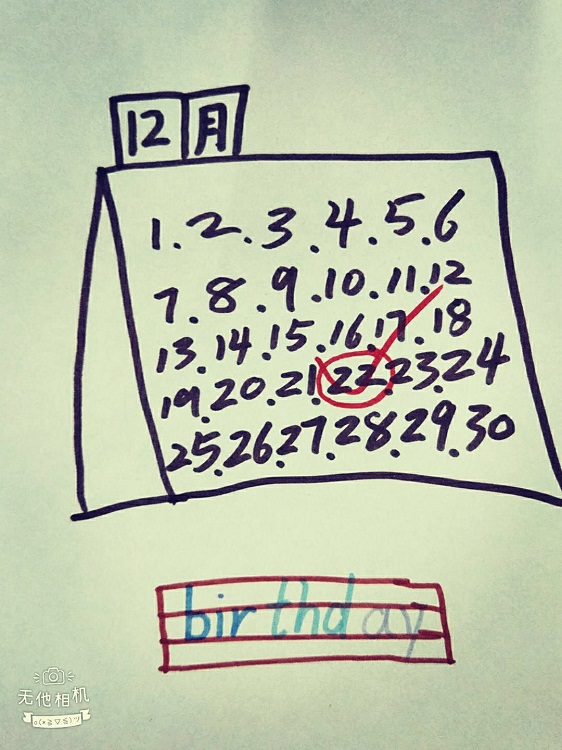 12月
1.2.3.4.5.6
7.8.9.10.11.12
13.14.15.16.17.18
19.20.21.22.23.24
25.26.27.28.29.30
birthday
无他相机